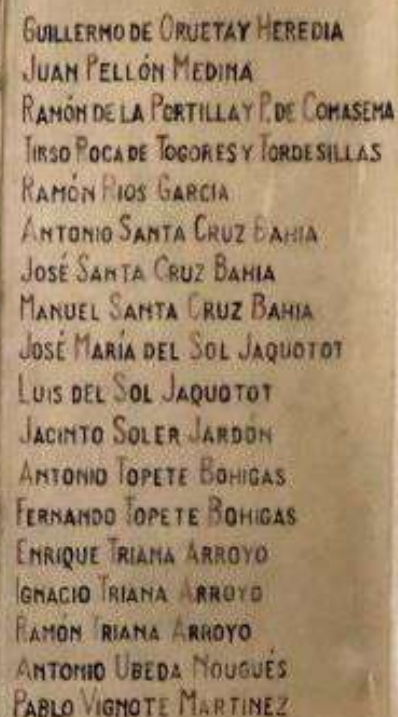 GUILLERMO DE ORUETA Y HEREDIA
JUAN PELLÓN MEDINA
RAMÓN DE LA PORTILLA Y P. DE COMASEMA
TIRSO ROCA DE TOGORES Y TORDESILLAS
RAMÓN RIOS GARCIA
ANTONIO SANTA CRUZ BAHIA
JOSÉ SANTA CRUZ BAHIA
MANUEL SANTA CRUZ BAHIA
JOSÉ MARÍA DEL SOL JAQUOTOT
LUIS DEL SOL JAQUOTOT
JACINTO SOLER JARDÓN
ANTONIO TOPETE BOHIGAS
FERNANDO TOPETE BOHIGAS
ENRIQUE TRIANA ARROYO
IGNACIO TRIANA ARROYO
RAMÓN TRIANA ARROYO
ANTONIO UBEDA NOUGUÉS
PABLO VIGNOTE MARTINEZ